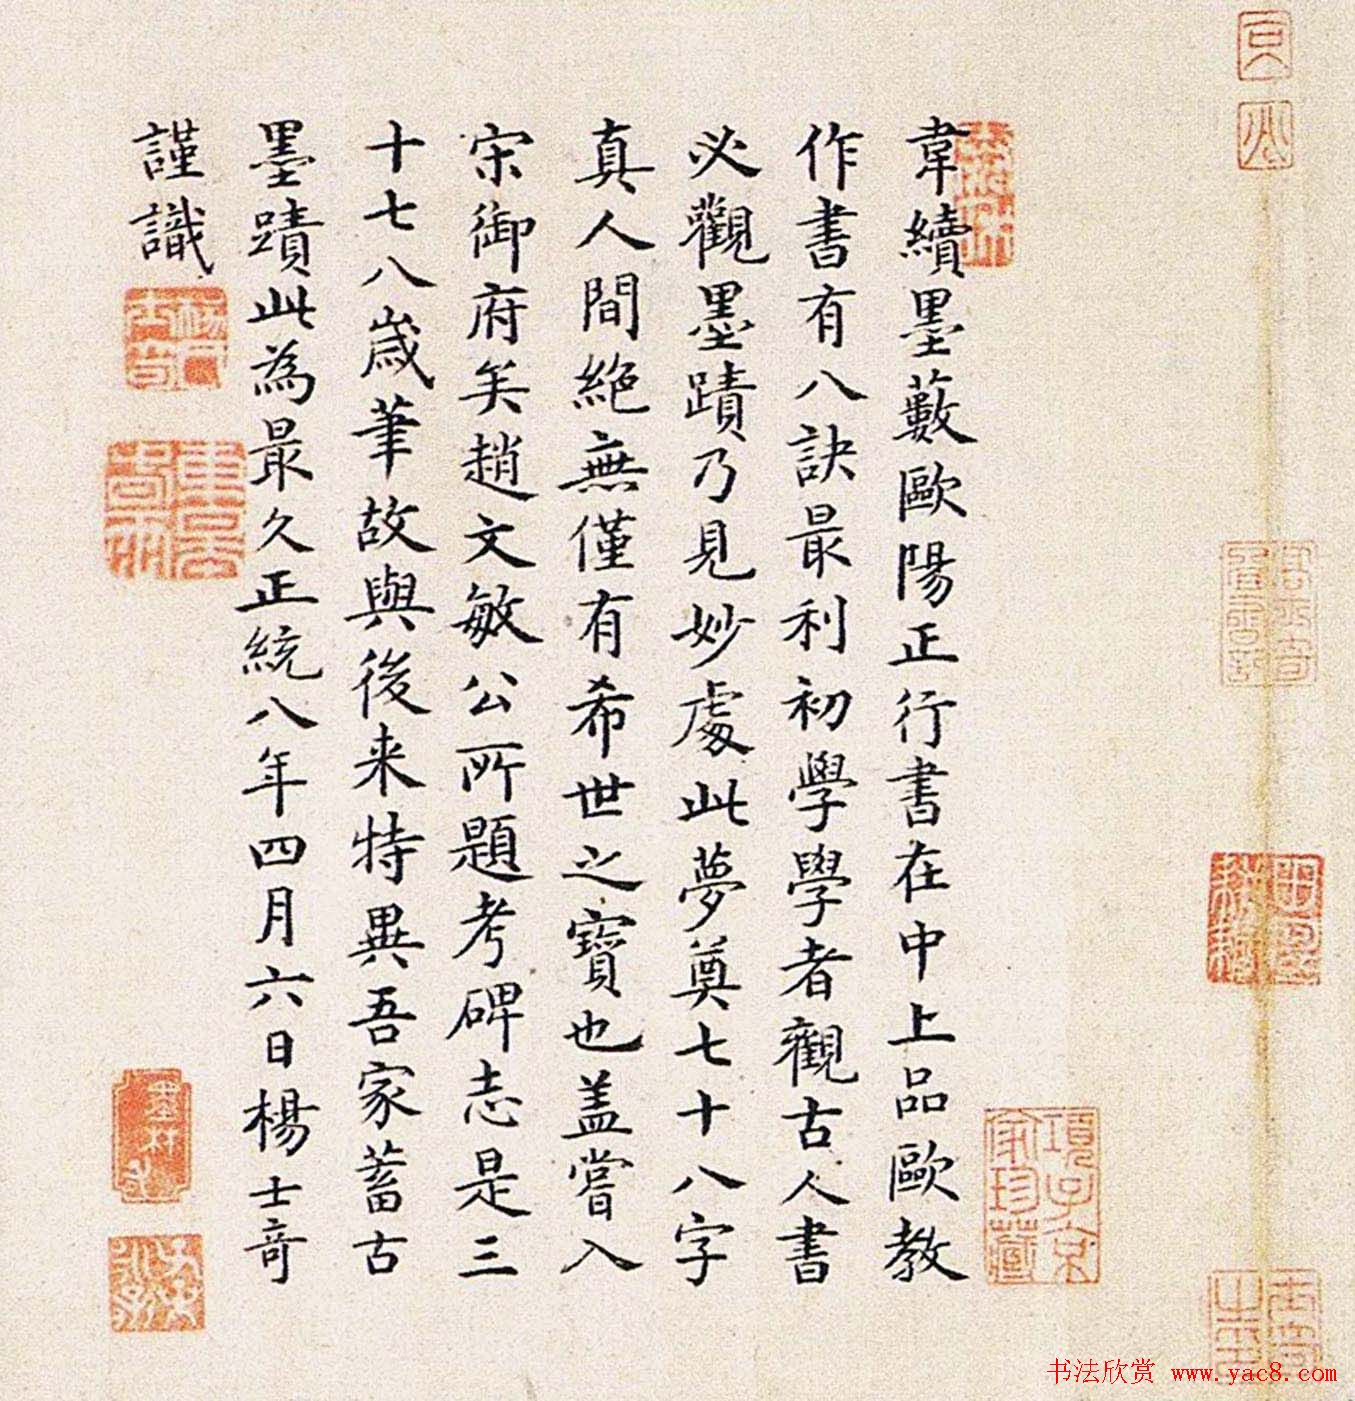 韋續墨藪歐陽正行書在中上品歐教
作書有八訣最利初學學者觀古人書
必觀墨蹟乃見妙處此夢奠七十八字
真人間絶無僅有希世之寶也盖嘗入
宋御府矣趙文敏公所題考碑志是三
十七八歲筆故與後来特異吾家蓄古
墨蹟此為最久正統八年四月六日楊士竒
謹識
項子京
家珍藏
书法欣赏 www.yac8.com